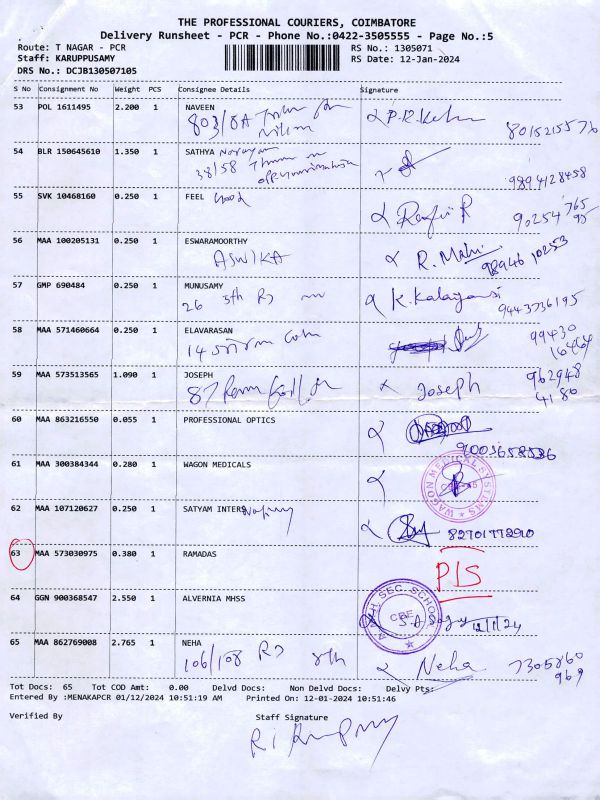 THE PROFESSIONAL COURIERS, COIMBATORE
Delivery Runsheet - PCR - Phone No.:0422-3505555 - Page No.:5
Route: T NAGAR - PCR RS No.: 1305071
Staff: KARUPPUSAMY RS Date: 12-Jan-2024
DRS No.: DCJB130507105
S No Consignment No Weight PCS Consignee Details Signature
53 POL 1611495 2.200 1 NAVEEN
803/8A
8015215576
54 BLR 150645610 1.350 1 SATHYA Narayan
38/58
9894128458
55 SVK 10468160 0.250 1 FEEL Good
90254 765
95
56 MAA 100205131 0.250 1 ESWARAMOORTHY
ASWIKA R. Mahi 98946 10253
57 GMP 690484 0.250 1 MUNUSAMY
26 5th K. Kalayansi 9443736195
58 MAA 571460664 0.250 1 ELAVARASAN
14 99430
16464
59 MAA 573513565 1.090 1 JOSEPH
87 Joseph 962948
4180
60 MAA 863216550 0.055 1 PROFESSIONAL OPTICS
9003658536
61 MAA 300384344 0.280 1 WAGON MEDICALS
WAGON MEDICAL SYSTEMS
62 MAA 107120627 0.250 1 SATYAM INTERS
82701778910
63 MAA 573030975 0.380 1 RAMADAS
P/S
64 GGN 900368547 2.550 1 ALVERNIA MHSS
SEC. SCHOOL CBE 12/1/24
65 MAA 862769008 2.765 1 NEHA
106/108 8th Neha 7305860
969
Tot Docs: 65 Tot COD Amt: 0.00 Delvd Docs: Non Delvd Docs: Delvy Pts:
Entered By :MENAKAPCR 01/12/2024 10:51:19 AM Printed On: 12-01-2024 10:51:46
Verified By Staff Signature